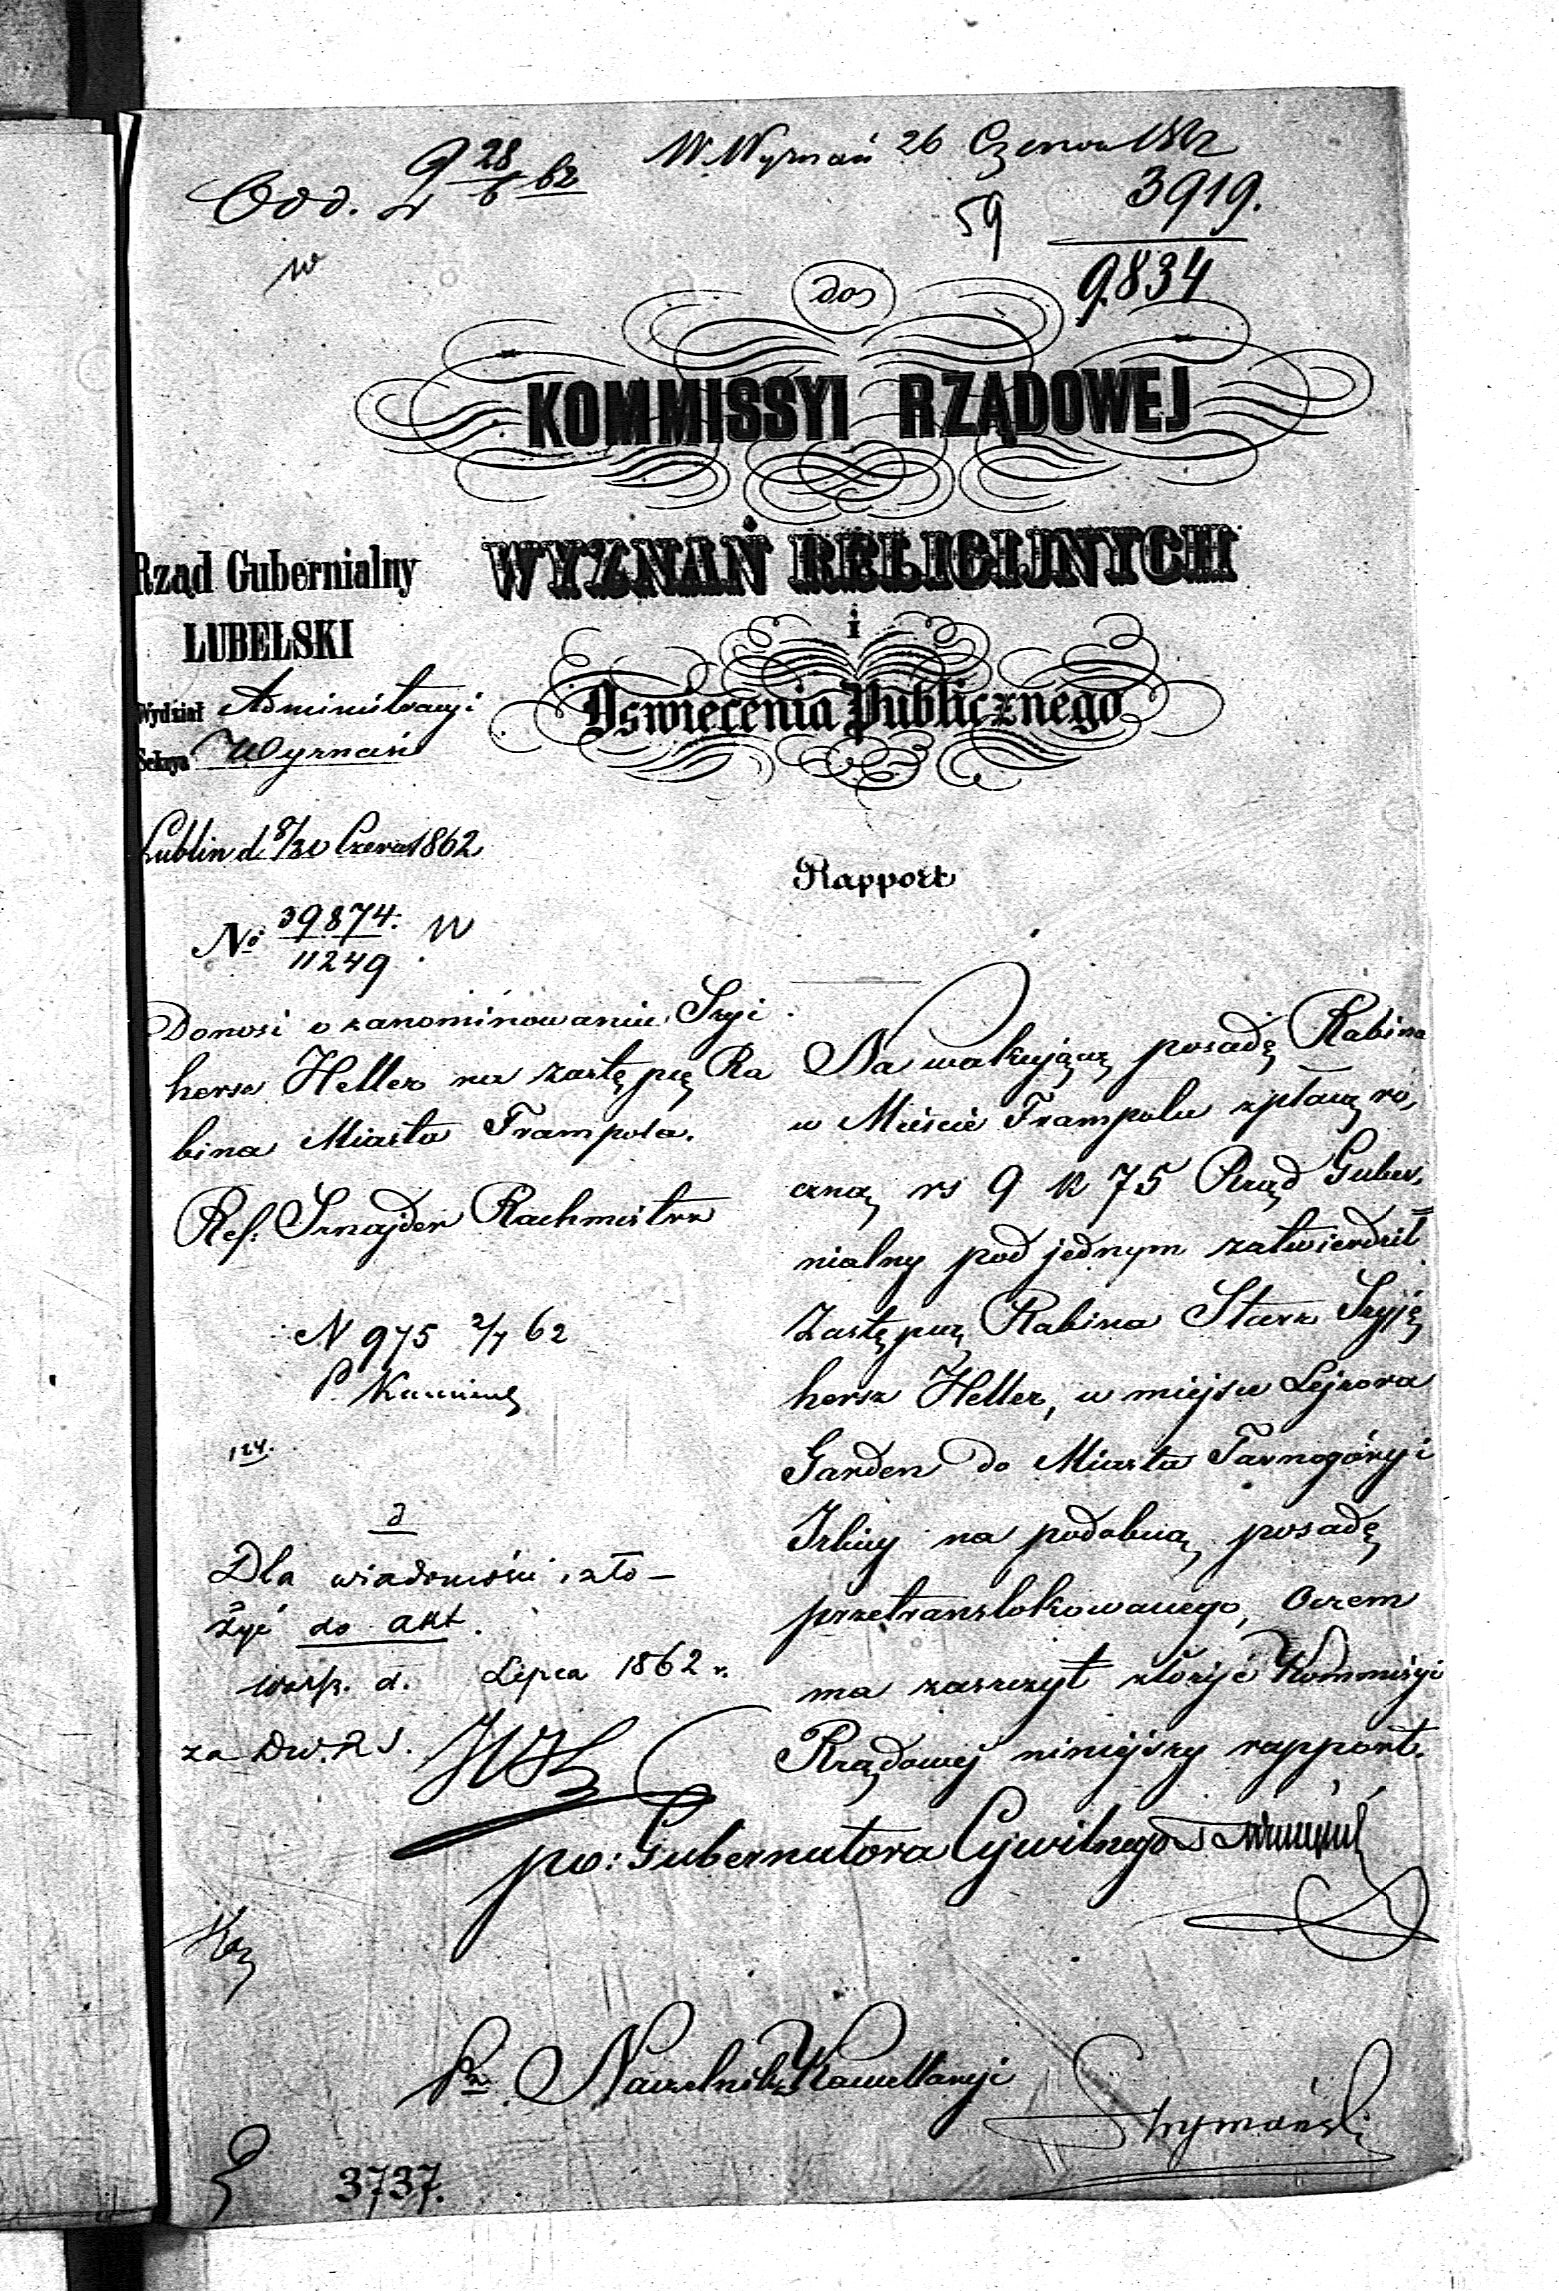 W. Wyznań 26 Czerwca 1862
Odd. 2 28/6 62
59
3919.
9834
do
KOMMISSYI RZĄDOWEJ
WYZNAŃ RELIGIJNYCH
i
Oświecenia Publicznego
Rząd Gubernialny
LUBELSKI
Wydział Administracyi
Sekcya Wyznań
Lublin d. 8/20 Czerwca 1862
No. 39874. W
11249
Donosi o zanominowaniu Szyi
hersz Heller na zastępcę Ra
bina Miasta Frampola.
Ref: Sznajder Rachmistrz
N 975 2/7 62
124.
d
Dla wiadomości i zło-
żyć do akt.
Warsz. d. Lipca 1862 r.
za Dw.
Rapport
Na wakującą posadę Rabina
w Mieście Frampolu z płacą ro,
czną rs 9 k 75 Rząd Guber,
nialny pod jednym zatwierdził
Zastępcą Rabina Starz Szyję
hersz Heller, w miejsce Lejzora
Garden do Miasta Tarnogóry i
Izbicy na podobną posadę
przetranslokowanego, Oczem
ma zaszczyt złożyć Kommisyi
Rządowej niniejszy rapport.
po: Gubernatora Cywilnego
Naczelnik Kancellaryi
Szymański
3737.